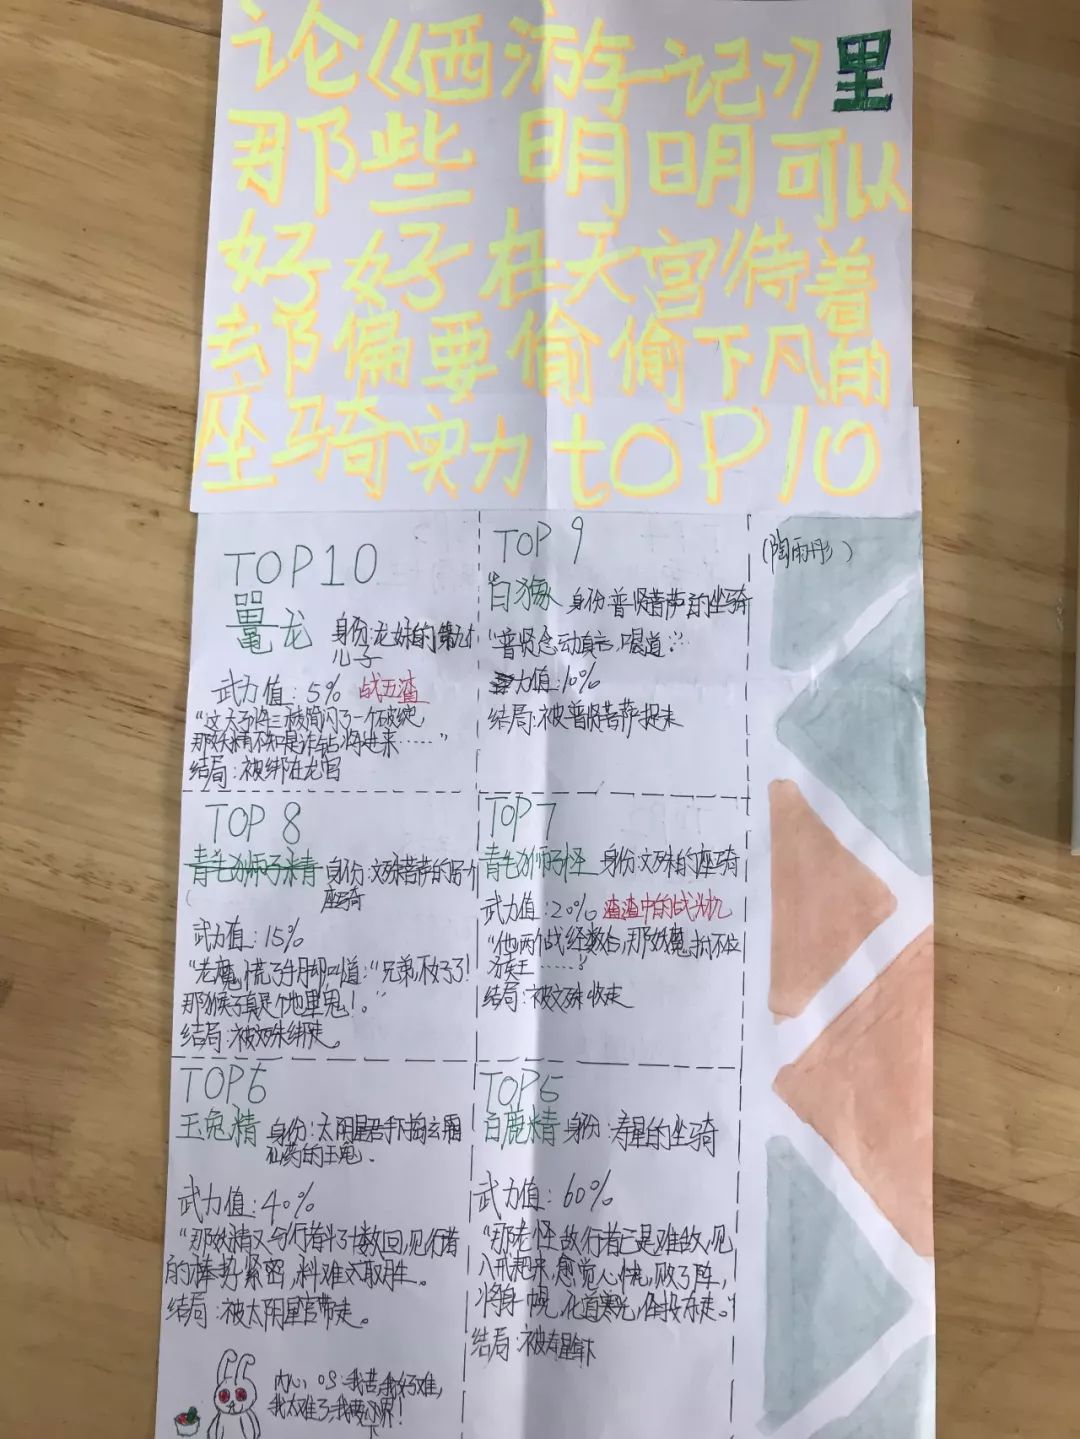 论《西游记》里
那些明明可以
好好在天宫待着
却偏要偷偷下凡的
座骑实力top10
(陶雨彤)
TOP10
鼍龙 身份:龙妹的第九个
儿子
武力值:5% 战五渣
结局:被绑在龙宫
TOP 9
白象 身份普贤菩萨的坐骑
"普贤念动真言,喝道:
力值:10%
结局:被普贤菩萨捉走
TOP 8
青毛狮子精 身份:文殊菩萨的另个
座骑
武力值:15%
"老魔慌了手脚,叫道:"兄弟,不好了!
那猴子真是个地里鬼!"
结局:被文殊绑走。
TOP7
青毛狮子怪 身份:文殊的座骑
武力值:20% 渣渣中的战斗机
"他两个战经数合,那妖魔抵不住
猴王……"
结局:被文殊收走
TOP6
玉兔精 身份:太阴星君手下捣玄霜
仙药的玉兔.
武力值:40%
"那妖精又与行者斗了十数回,见行者
的棒势紧密,料难以取胜。
结局:被太阴星官带走。
内心OS:我苦,我好难,
我太难了,
TOP5
白鹿精 身份:寿星的坐骑
武力值:60%
"那老怪敌行者已是难敌,见
八戒赶来,愈觉心慌,败了阵,
将身一幌,化道寒光,径投东走。"
结局:被寿星拿下